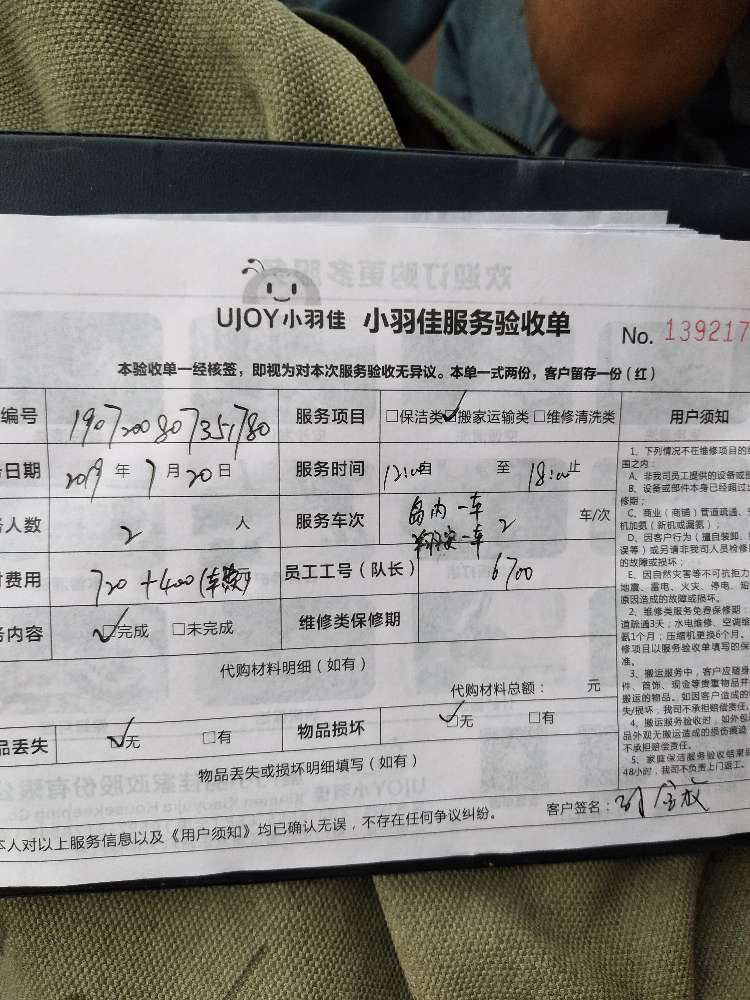 UJOY小羽佳 小羽佳服务验收单 No. 139217
本验收单一经核签，即视为对本次服务验收无异议。本单一式两份，客户留存一份（红）
编号 服务项目 □保洁类 ☑搬家运输类 □维修清洗类 用户须知
日期 2019 年 7 月 20 日 服务时间 12:00自 至 18:00止
人数 2 人 服务车次 岛内一车 翔安一车 2 车/次
费用 720+400(车费) 员工工号（队长） 6700
内容 ☑完成 □未完成 维修类保修期
代购材料明细（如有）
代购材料总额： 元
品丢失 ☑无 □有 物品损坏 ☑无 □有
物品丢失或损坏明细填写（如有）
本人对以上服务信息以及《用户须知》均已确认无误，不存在任何争议纠纷。 客户签名：
1、下列情况不在维修项目的
围之内：
A、非我司员工提供的设备或
B、设备或部件本身已经超过
修期；
C、商业（商铺）管道疏通、
机加氨（新机或漏氨）；
D、因客户行为（擅自装卸、
误等）或另请非我司人员检修
的故障或损坏；
E、因自然灾害等不可抗拒力
地震、雷电、火灾、停电、短
原因造成的故障或损坏。
2、维修类服务免费保修期：
道疏通3天；水电维修、空调维
氨1个月；压缩机更换6个月。
修项目以服务验收单填写的保
准。
3、搬运服务中，客户应随身
件、首饰、现金等贵重物品并
搬运的物品。如因客户造成的
失/损坏，我司不承担赔偿责任。
4、搬运服务验收时，如外包
品外观无搬运造成的损伤痕迹，
不承担赔偿责任。
5、家庭保洁服务验收结束后
48小时，我司不负责上门返工。